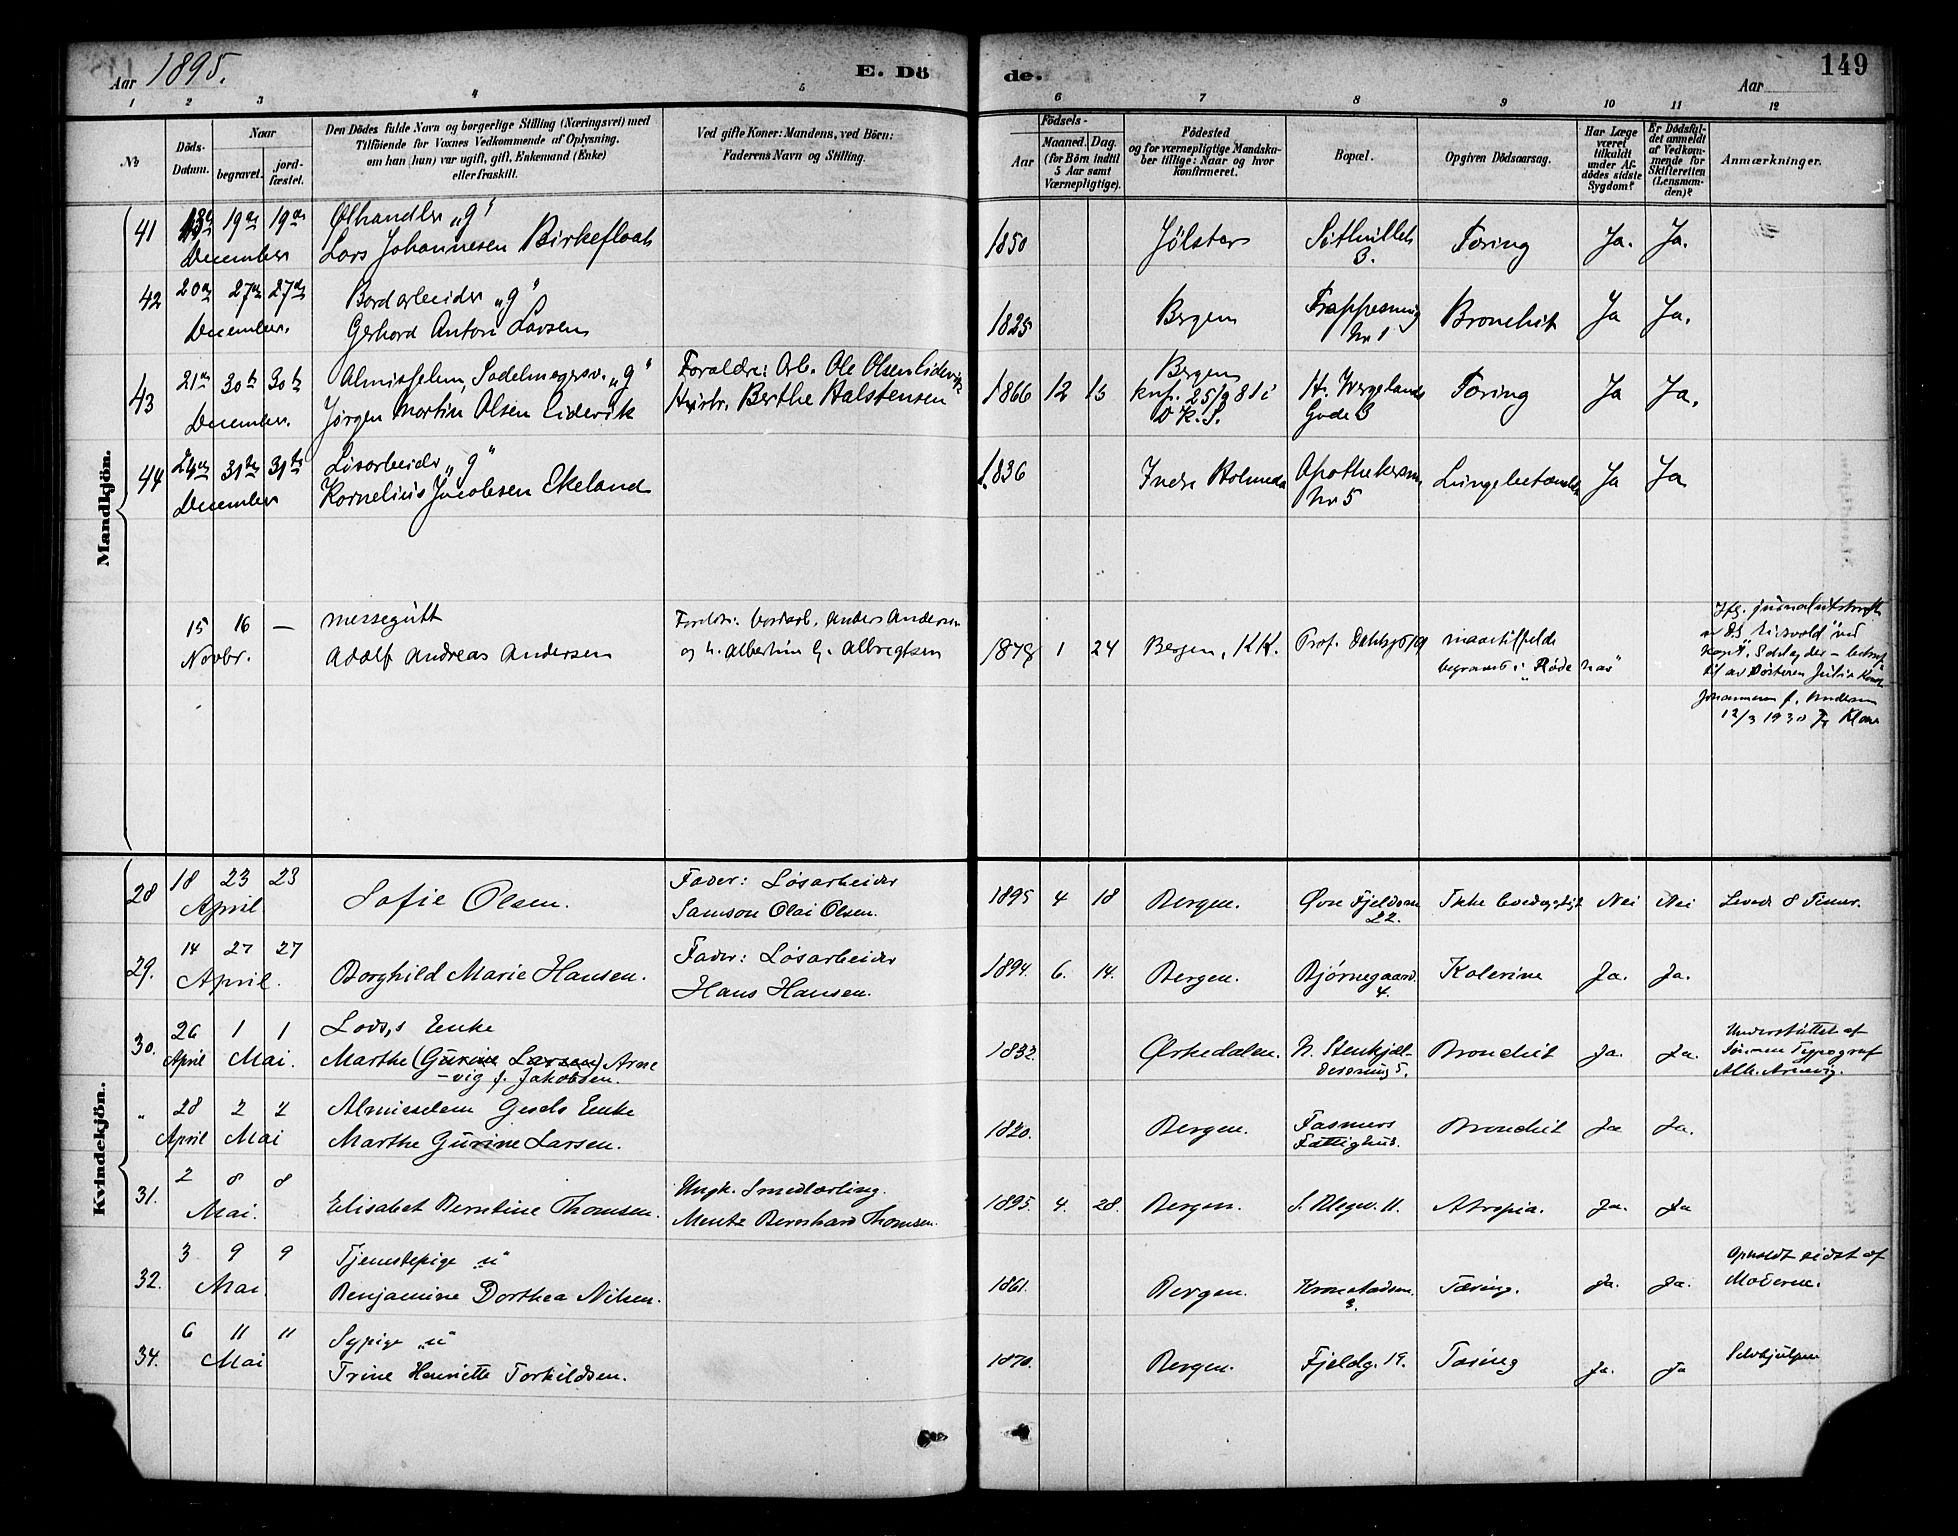 Aar 1895.
E. Dö
de.
Aar
149
1 2 3 4 5 6 7 8 9 10 11 12
No
Döds-
Datum.
Naar
begravet.
jord-
fæstet.
Den Dödes fulde Navn og borgerlige Stilling (Næringsvei) med
Tilföiende for Voxnes Vedkommende af Oplysning,
om han (hun) var ugift, gift, Enkemand (Enke)
eller fraskilt.
Ved gifte Koner: Mandens, ved Börn:
Faderens Navn og Stilling.
Födsels-
Aar
Maaned. Dag.
(for Börn indtil
5 Aar samt
Værnepligtige).
Födested
og for værnepligtige Mandska-
ber tillige: Naar og hvor
konfirmeret.
Bopæl.
Opgiven Dödsaarsag.
Har Læge
været
tilkaldt
under Af-
dødes sidste
Sygdom?
Er Dödsfal-
det anmeldt
af Vedkom-
mende for
Skifteretten
(Lensman-
den)?
Anmærkninger.
Mandkjön.
41 19de 19de Ølhandler „g"
December Lars Johannesen Birkefloat
1850 Jølster 3. Tæring Ja. Ja.
42 20de 27de 27de Bordarbeider „g"
December. Gerhard Anton Larsen
1825 Bergen Trappesmug No 1 Bronchit Ja Ja.
43 21de 30te 30te Almisselem, Sadelmagersv. „g"
December. Jørgen Martin Olsen Eidevik
Forældre: Arb. Ole Olsen Eidevik
Hustr. Berthe Halstensen
1866 12 15 Bergen
knf. 25/9 81 i
D.K.S.
H. Wergelands
Gade 3
Tæring Ja Ja.
44 24de 31te 31te Løsarbeider „g"
December Kornelius Jacobsen Ekeland
1836 Indre Holmedal Apothekersm.
No 5
Lungebetændelse Ja Ja
15 16 —
Novbr.
Messegutt
Adolf Andreas Andersen
Foreldre: bordarb. Anders Andersen
og h. Albertine G. Albregtsen
1878 1 24 Bergen, KK.
begravet i „Røde Hav"
Ifg. journalutskrift
av D/S „Eidsvold" ved
til av søsteren Julie
Johannesen f. Andersen
12/3 1930
Kvindekjön.
28 18 23 23
April
Sofie Olsen.
Fader: Løsarbeider
Samson Olai Olsen.
1895 4 18 Bergen. Øvre Fjeldsm.
22.
Ikke Nei Nei Levede 8 Timer.
29. 14 27 27
April.
Borghild Marie Hansen.
Fader: Løsarbeider
Hans Hansen.
1894. 6. 14. Bergen. Bjørnegaard.
4.
Kolerine Ja. Ja.
30. 26 1 1
April Mai.
Lods,s Enke
Marthe (Gurine Larsen) Arne
-vig f. Jakobsen.
1832. Ørskedalen. N. Stenkjæl-
dersmug 5.
Bronchit Ja. Ja.
Understøttet af
Sønnen Typograf
Alb. Arnevig.
" 28 2 2
April Mai
Almisselem Gesels Enke
Marthe Gurine Larsen.
1820. Bergen. Fasmers
Fattighus.
Bronchit Ja Ja.
31. 2 8 8
Mai.
Elisabet Berntine Thomsen.
Ungk. Smedlærling.
Mentz Bernhard Thomsen.
1895. 4. 28. Bergen. 11. Atropia. Ja. Ja
32. 3 9 9
Mai
Tjenestepige „u"
Benjamine Dorthea Nilsen.
1861. Bergen. Kronstadsm.
3.
Tæring. Ja. Ja.
Opholdt sidst af
Moderen.
34. 6 11 11
Mai
Sypige „u"
Trine Henriette Torkildsen.
1870. Bergen. Fjeldg. 19. Tæring Ja. Ja
Selvhjulpen